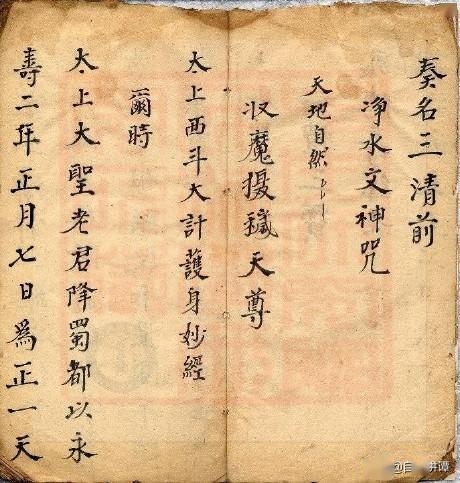 奏名三清前
净水文神咒
天地自然
収魔摄穢天尊
太上西斗大計護身妙經
爾時
太上大聖老君降蜀都以永
壽二年正月七日為正一天